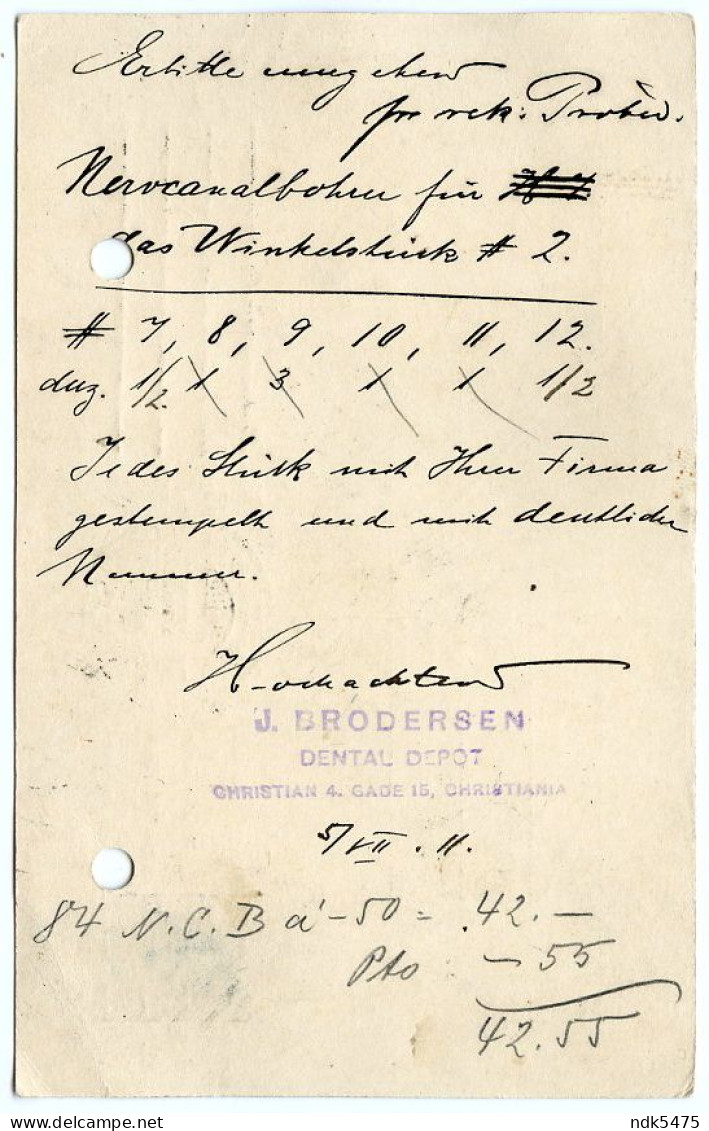 Erbitte umgehend
pr rek. Probe.
Nervcanalbohrer für
das Winkelstück # 2.
# 7, 8, 9, 10, 11, 12.
duz. 1/2. 1 3 1 1 1/2
Jedes Stück mit Ihrer Firma
gestempelt und mit deutlicher
Nummer.
Hochachtend
J. BRODERSEN
DENTAL DEPOT
CHRISTIAN 4. GADE 15, CHRISTIANIA
5/VII. 11.
84 N. C. B à -50 = 42.—
Pto — 55
42.55
ndk5475